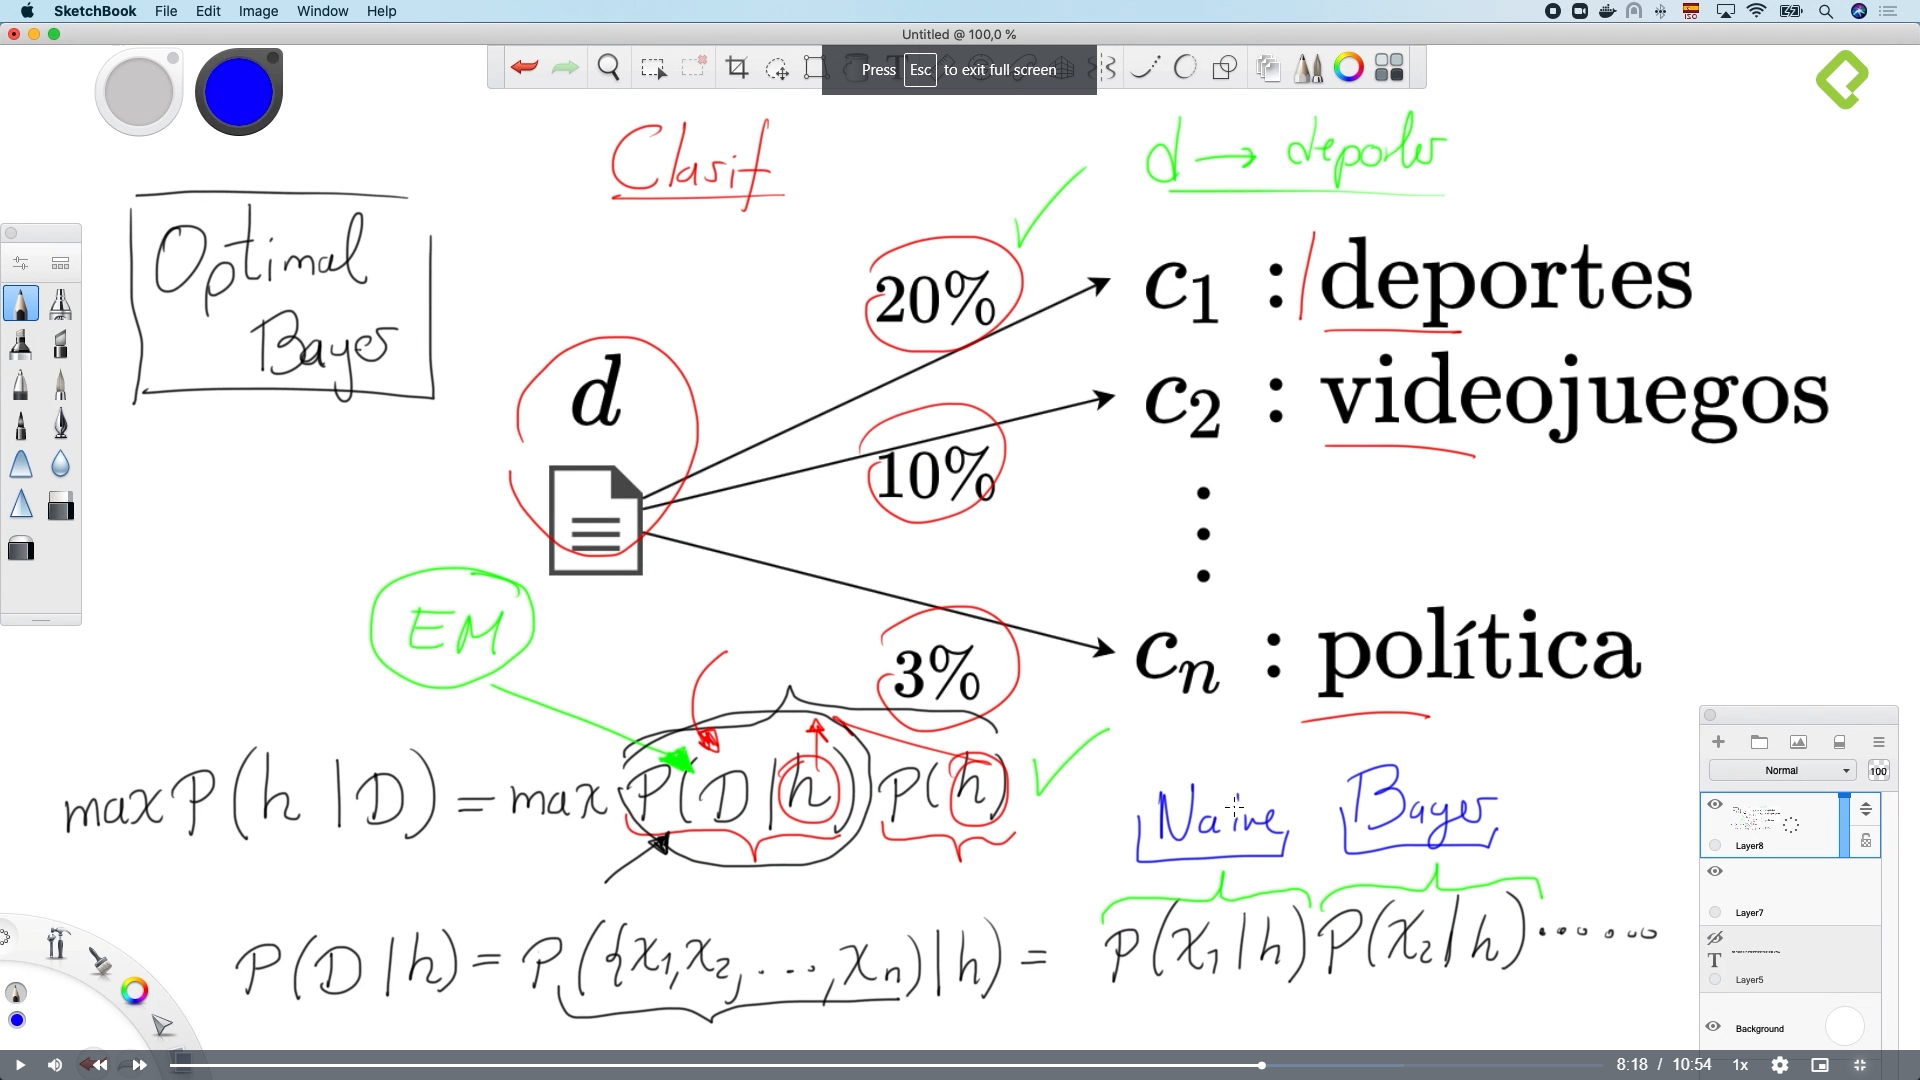 SketchBook File Edit Image Window Help
ISO
Untitled @ 100,0 %
Press Esc to exit full screen
Clasif
d → deportes
Optimal
Bayes
20%
c1 : deportes
d
c2 : videojuegos
10%
EM
3%
cn : política
max P(h|D) = max P(D|h) P(h)
Naive Bayes
P(D|h) = P({x1,x2,...,xn)|h) = P(x1|h) P(x2|h) ......
Normal
100
Layer8
Layer7
T
Layer5
Background
8:18 / 10:54 1x